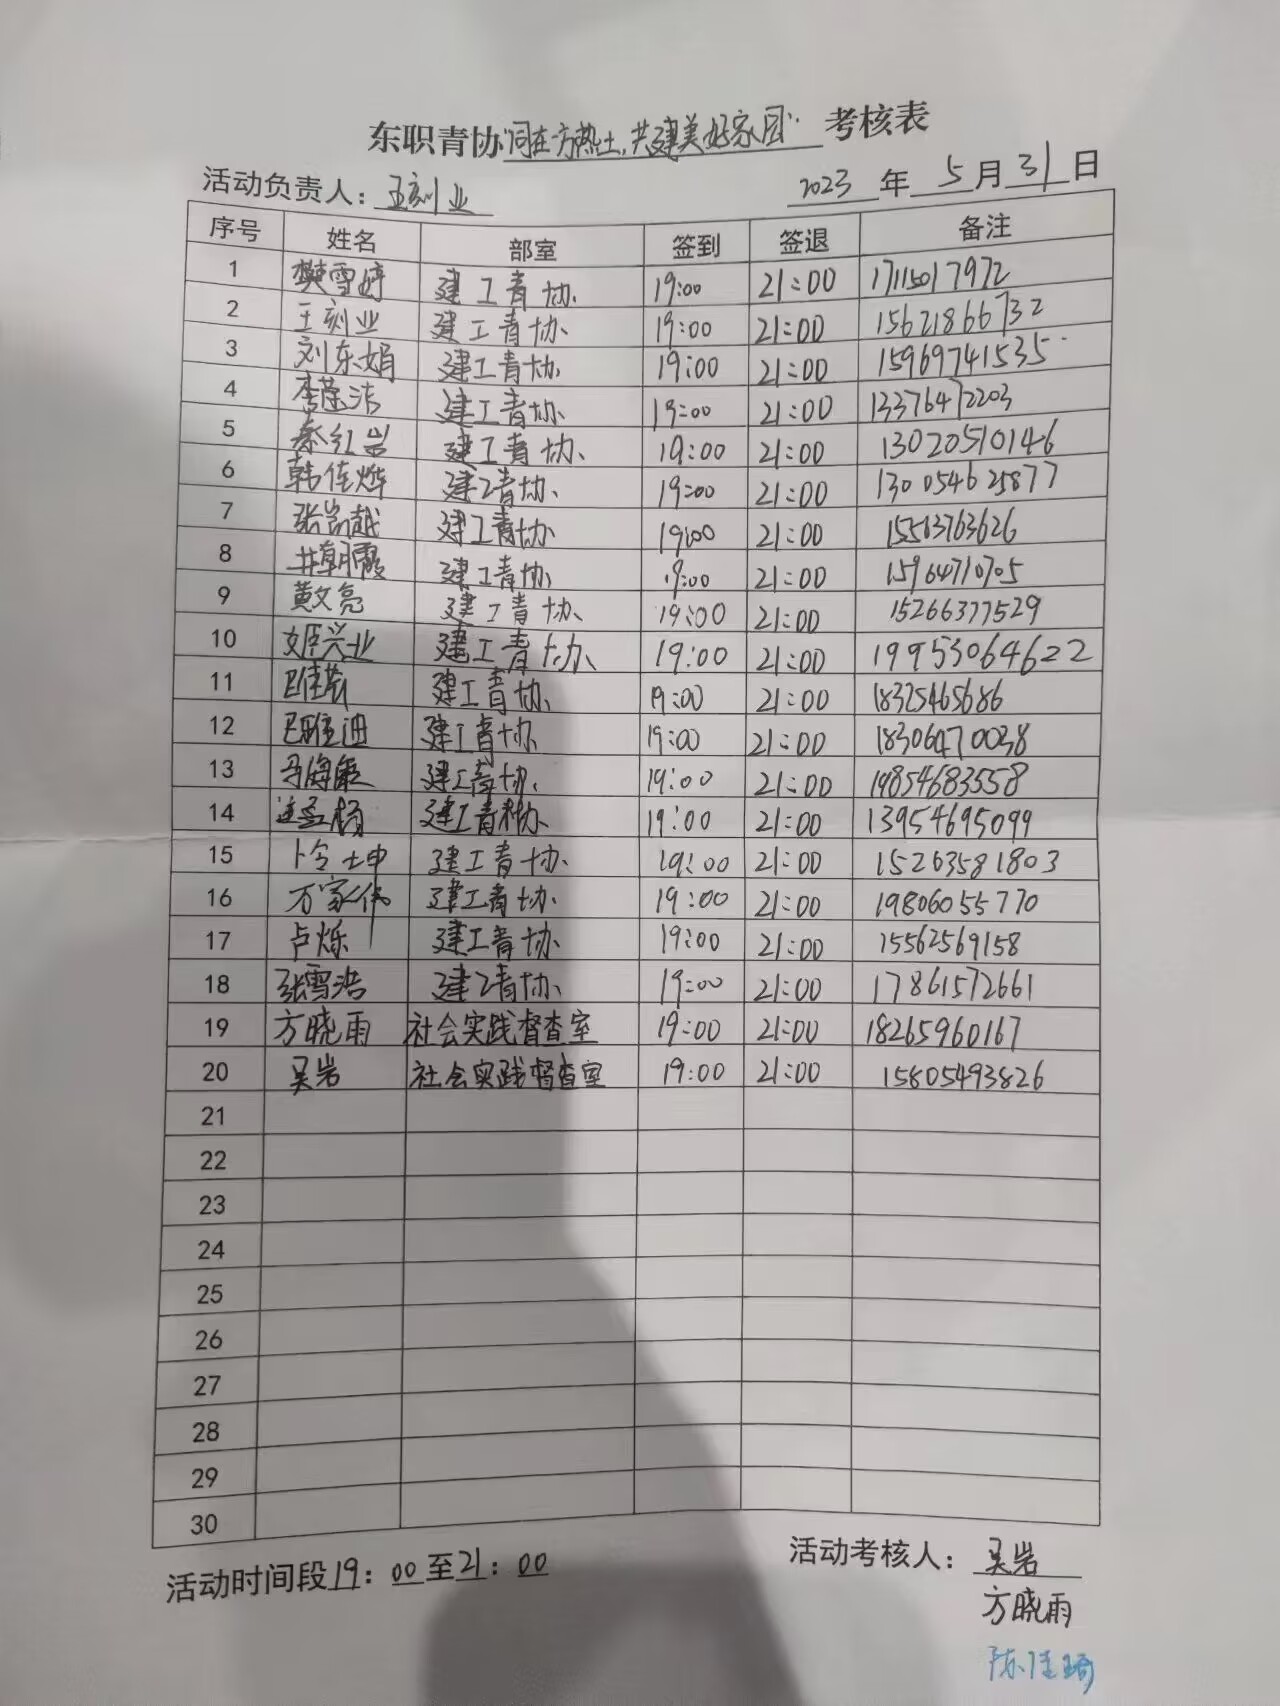 东职青协“同在一方热土,共建美好家园”考核表
活动负责人:王刻业 2023年5月31日
序号 姓名 部室 签到 签退 备注
1 樊雪婷 建工青协 19:00 21:00 17115017972
2 王刻业 建工青协 19:00 21:00 15621866732
3 刘东娟 建工青协 19:00 21:00 15969741535
4 李莲洁 建工青协 19:00 21:00 13376472203
5 秦红岩 建工青协 19:00 21:00 13020510146
6 韩佳烨 建工青协 19:00 21:00 130054625877
7 张凯越 建工青协 19:00 21:00 15563763626
8 井朝霞 建工青协 19:00 21:00 15964710705
9 黄文亮 建工青协 19:00 21:00 15266377529
10 姬兴业 建工青协 19:00 21:00 19953064622
11 建工青协 19:00 21:00 18325465686
12 建工青协 19:00 21:00 18306470038
13 马海敏 建工青协 19:00 21:00 19854683558
14 建工青协 19:00 21:00 13954695099
15 卜令坤 建工青协 19:00 21:00 15263581803
16 万家伟 建工青协 19:00 21:00 19806055770
17 卢烁 建工青协 19:00 21:00 15562569158
18 张雪浩 建工青协 19:00 21:00 17861572661
19 方晓雨 社会实践督查室 19:00 21:00 18265960167
20 吴岩 社会实践督查室 19:00 21:00 15805493826
21
22
23
24
25
26
27
28
29
30
活动时间段19:00至21:00 活动考核人:吴岩
方晓雨
陈佳琦